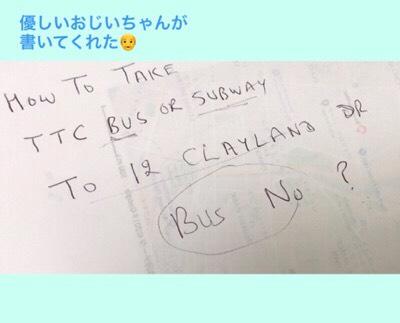 優しいおじいちゃんが
書いてくれた👴
HOW TO TAKE
TTC BUS OR SUBWAY
TO 12 CLAYLAND DR
BUS NO ?